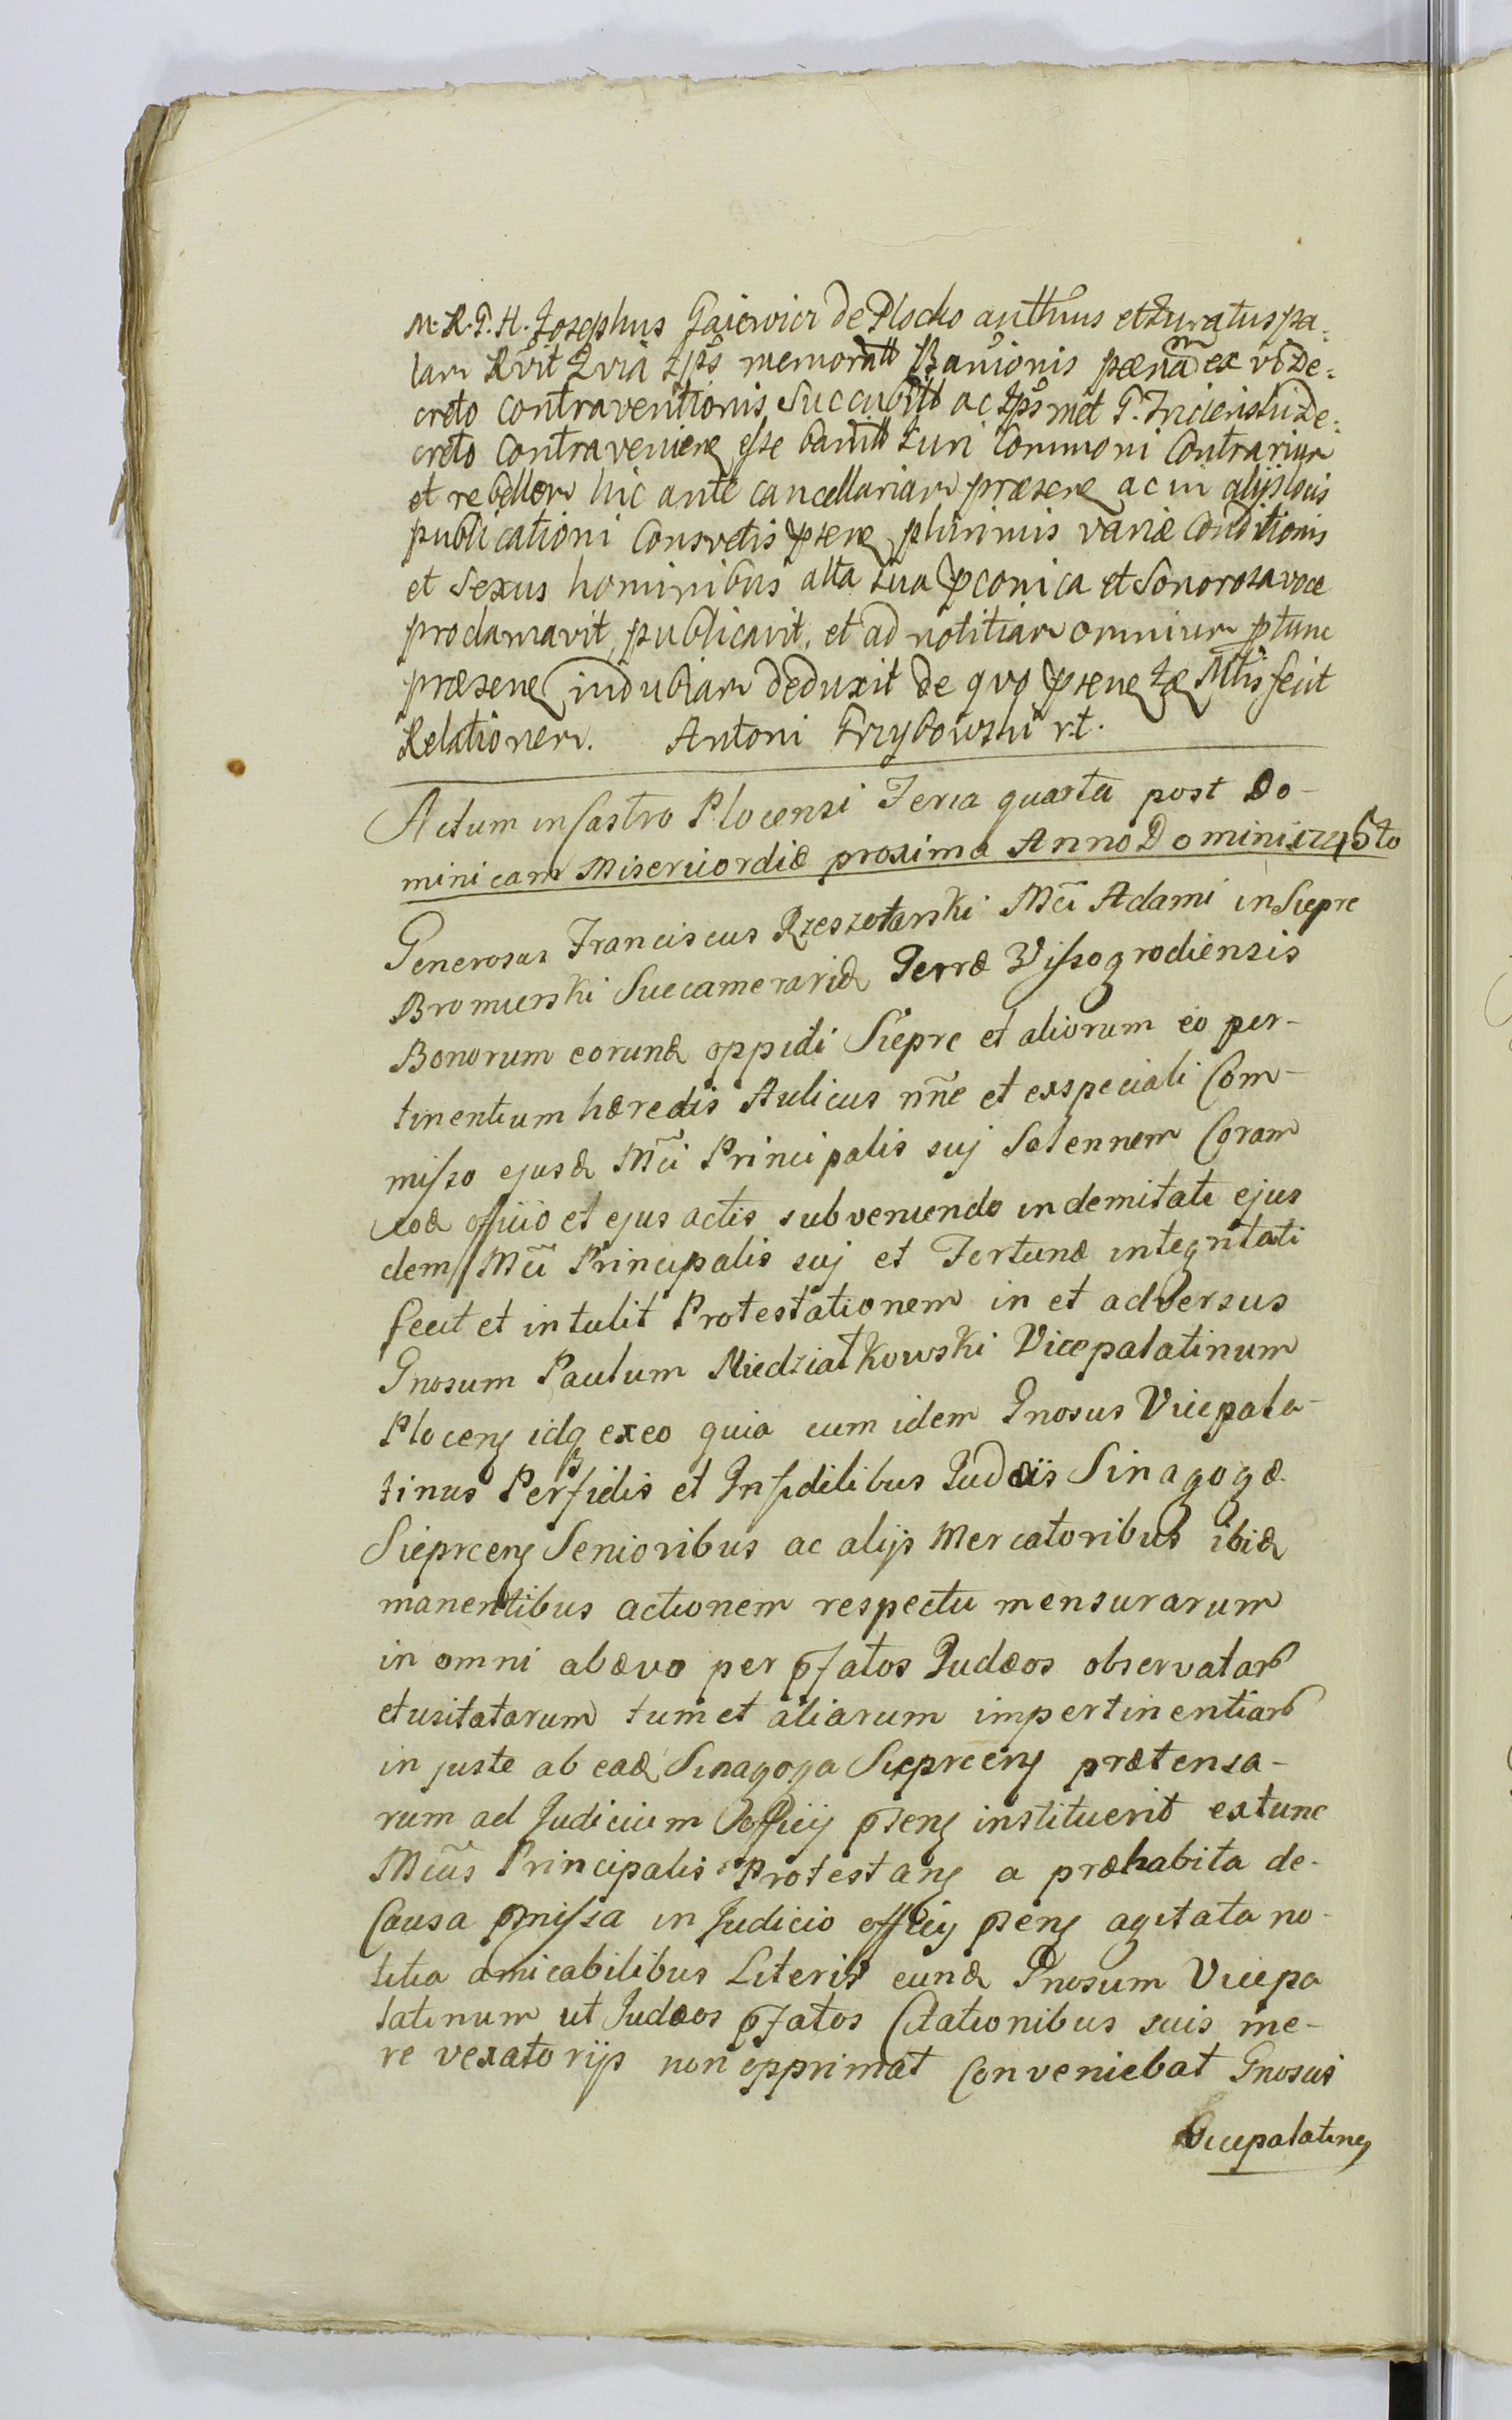 M. R. G. H. Josephus Gaiewicz de Plocko autthus et Juratus pa:
lam Rvit Quia Ips memoratt Banionis pænam ex vi De:
creto contraventionis Succubitt ac Ipsmet G. De:
creto Contravenieñ esse banitt Juri Commoni Contrarium
et rebellem hic ante cancellariam præseñ ac in alijs locis
publicationi Consvetis pseñ plurimis variæ Conditionis
et Sexus hominibus alta sua pconica et Sonorosa voce
proclamavit, publicavit, et ad notitiam omnium ptunc
præseneñ indubiam deduxit de qvo pseneñ Mtis fecit
Relationem. Antoni Grzybowski rt.
Actum in Castro Plocensi Feria quarta post Do-
minicam Misericordiæ proxima Anno Domini 1745to
Generosus Franciscus Rzeszotarski Mci Adami in Sieprc
Bromierski Succamerarij Terræ Vissogrodiensis
Bonorum eorund oppidi Sieprc et aliorum eo per-
tinentium hæredis Aulicus nñe et ex speciali Com-
misso ejusd Mci Principalis suj Solennem Coram
eod officio et ejus actis subveniendo indemitati ejus
dem Mci Principalis suj et Fortunæ integritati
fecit et intulit Protestationem in et adversus
Gnosum Paulum Niedziałkowski Vicepalatinum
Ploceñ idq ex eo quia cum idem Gnosus Vicepala-
tinus Perfidis et Infidilibus Judæis Sinagogæ
Sieprceñ Senioribus ac alijs Mercatoribus ibid
manentibus actionem respectu mensurarum
in omni ab ævo per pfatos Judæos observatar
et usitatarum tum et aliarum impertinentiar
injuste ab ead Sinagoga Sieprceñ prætensa-
rum ad Judicium Officij pseñ instituerit extunc
Mcus Principalis Protestañ a præhabita de
Causa pmissa in Judicio officij pseñ agitata no-
titia amicabilibus Literis eund Gnosum Vicepa
latinum ut Judæos pfatos Citationibus suis me-
re vexatorijs non opprimat Conveniebat Gnosus
Vicepalatinus